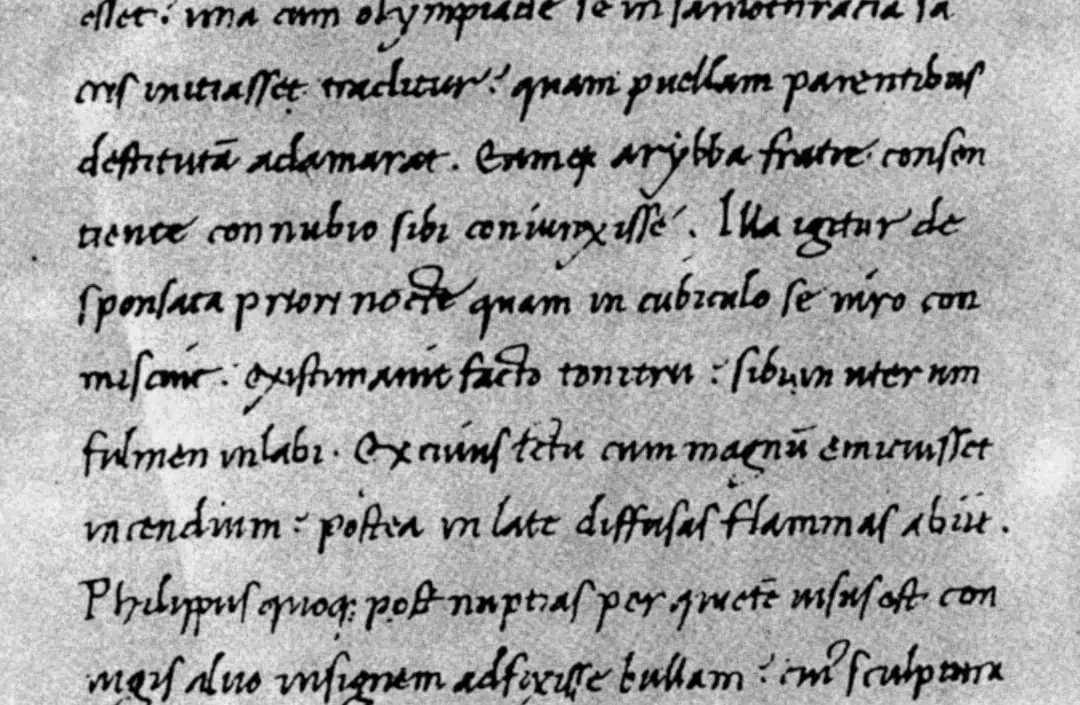 esset: una cum olympiade se in samothracia sa
cris initiasset traditur: quam puellam parentibus
destitutā adamarat. Eamqꝫ arybba fratre consen
tiente connubio sibi coniunxisse. Illa igitur de
sponsata priori nocte quam in cubiculo se uiro con
misceret: existimauit facto tonitru: sibi in uterum
fulmen inlabi. Ex cuius ictu cum magnū emicuisset
incendium: postea in late diffusas flammas abiit.
Philippus quoqꝫ post nuptias per quietē uisus est con
iugis aluo insignem adfixisse bullam: cuiꝰ sculptura